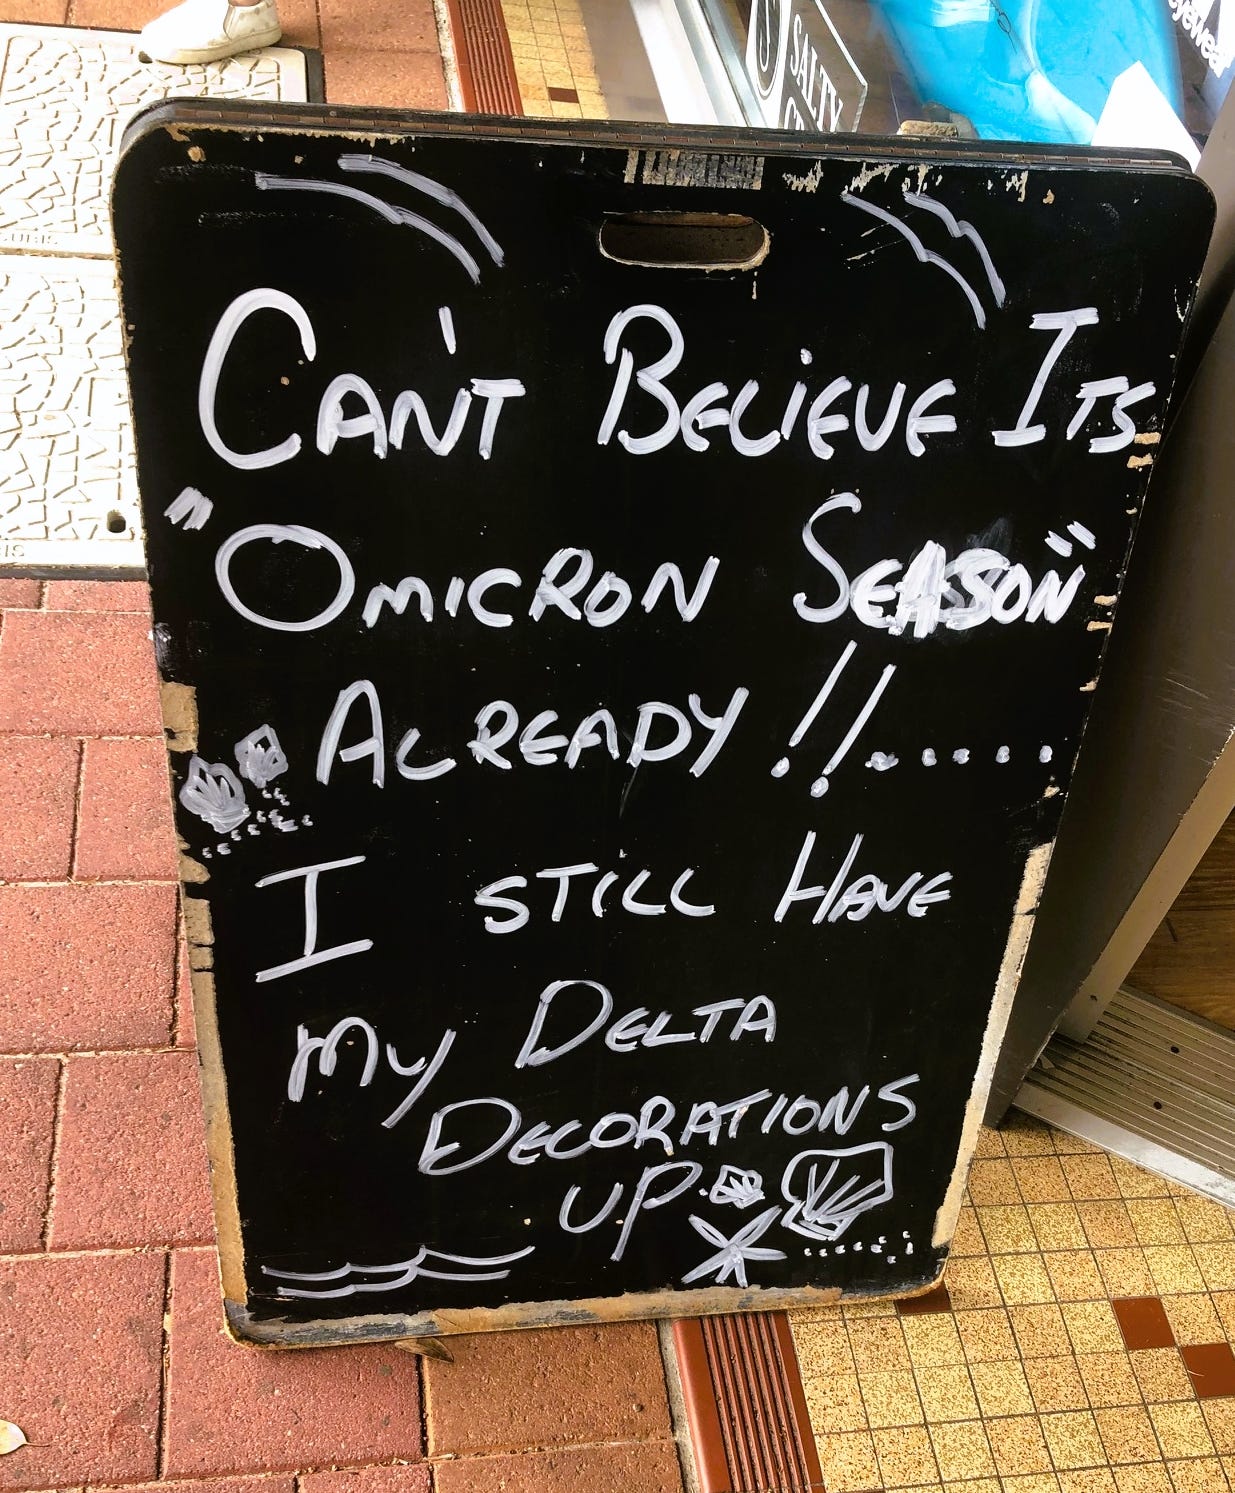 SALTY
eyewear
CAN'T BELIEVE ITS
"OMICRON SEASON"
ALREADY!!......
I STILL HAVE
MY DELTA
DECORATIONS
UP